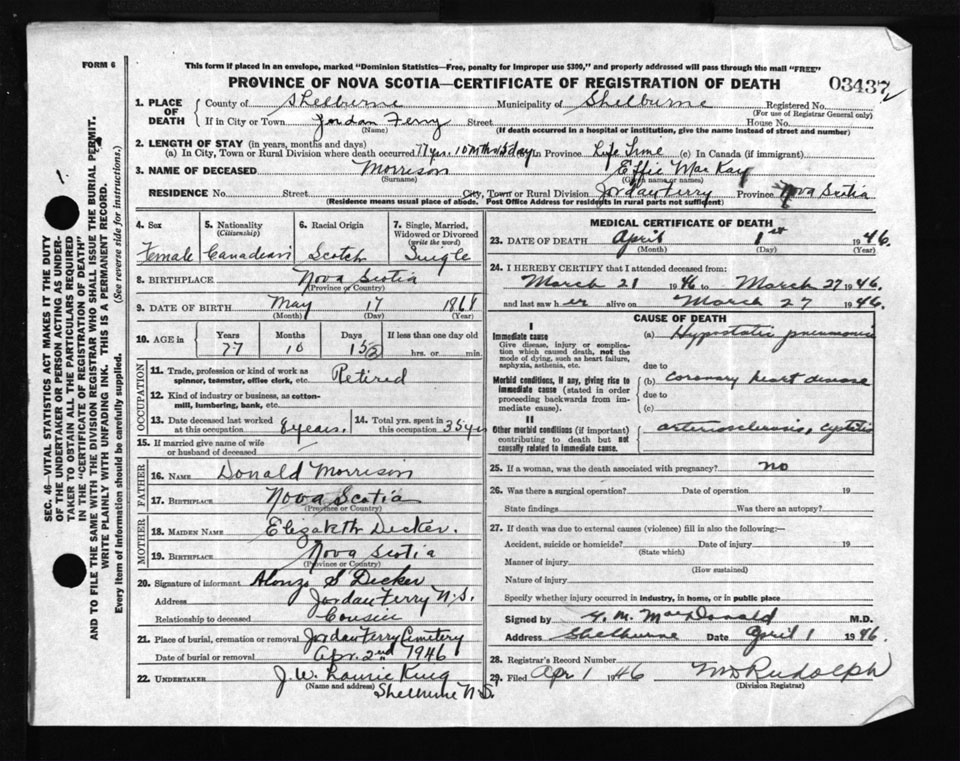 FORM 6
This form if placed in an envelope, marked "Dominion Statistics—Free, penalty for improper use $300," and properly addressed will pass through the mail "FREE"
PROVINCE OF NOVA SCOTIA—CERTIFICATE OF REGISTRATION OF DEATH
03437
1. PLACE OF DEATH
County of Shelburne Municipality of Shelburne Registered No.
(For use of Registrar General only)
If in City or Town Jordan Ferry Street House No.
(Name) (If death occurred in a hospital or institution, give the name instead of street and number)
2. LENGTH OF STAY (in years, months and days)
(a) In City, Town or Rural Division where death occurred 77 yrs. 10 mths 15 day In Province Life Time (c) In Canada (if immigrant)
3. NAME OF DECEASED Morrison Effie MacKay
(Surname) (Given name or names)
RESIDENCE No. Street City, Town or Rural Division Jordan Ferry Province Nova Scotia
(Residence means usual place of abode. Post Office Address for residents in rural parts not sufficient)
4. Sex
Female
5. Nationality
(Citizenship)
Canadian
6. Racial Origin
Scotch
7. Single, Married, Widowed or Divorced
(write the word)
Single
8. BIRTHPLACE Nova Scotia
(Province or Country)
9. DATE OF BIRTH May 17 1868
(Month) (Day) (Year)
10. AGE in
Years Months Days If less than one day old
77 10 15 hrs. or min.
OCCUPATION
11. Trade, profession or kind of work as spinner, teamster, office clerk, etc. Retired
12. Kind of industry or business, as cotton-mill, lumbering, bank, etc.
13. Date deceased last worked at this occupation 8 years.
14. Total yrs. spent in this occupation 35 yrs
15. If married give name of wife or husband of deceased
FATHER
16. NAME Donald Morrison
17. BIRTHPLACE Nova Scotia
(Province or Country)
MOTHER
18. MAIDEN NAME Elizabeth Decker.
19. BIRTHPLACE Nova Scotia
(Province or Country)
20. Signature of informant Alonzo S Decker
Address Jordan Ferry N.S.
Relationship to deceased Cousin
21. Place of burial, cremation or removal Jordan Ferry Cemetery
Date of burial or removal Apr. 2nd 1946
22. UNDERTAKER J.W. Laurie King
(Name and address) Shelburne N.S.
MEDICAL CERTIFICATE OF DEATH
23. DATE OF DEATH April 1st 1946.
(Month) (Day) (Year)
24. I HEREBY CERTIFY that I attended deceased from:
March 21 1946 to March 27 1946.
and last saw her alive on March 27 1946.
CAUSE OF DEATH
I
Immediate cause
Give disease, injury or complication which caused death, not the mode of dying, such as heart failure, asphyxia, asthenia, etc.
(a) Hypostatic pneumonia
due to
Morbid conditions, if any, giving rise to immediate cause (stated in order proceeding backwards from immediate cause).
(b) coronary heart disease
due to
(c)
II
Other morbid conditions (if important) contributing to death but not causally related to immediate cause.
arteriosclerosis, cystitis
25. If a woman, was the death associated with pregnancy? no
26. Was there a surgical operation? Date of operation 19
State findings Was there an autopsy?
27. If death was due to external causes (violence) fill in also the following:—
Accident, suicide or homicide? Date of injury 19
(State which)
Manner of injury
(How sustained)
Nature of injury
Specify whether injury occurred in industry, in home, or in public place
Signed by MacDonald M.D.
Address Shelburne Date April 1 1946.
28. Registrar's Record Number
29. Filed Apr 1 1946 Rudolph
(Division Registrar)
SEC. 46—VITAL STATISTICS ACT MAKES IT THE DUTY
OF THE UNDERTAKER OR PERSON ACTING AS UNDER-
TAKER TO OBTAIN ALL THE PARTICULARS REQUIRED
IN THE "CERTIFICATE OF REGISTRATION OF DEATH"
AND TO FILE THE SAME WITH THE DIVISION REGISTRAR WHO SHALL ISSUE THE BURIAL PERMIT.
WRITE PLAINLY WITH UNFADING INK. THIS IS A PERMANENT RECORD.
Every item of information should be carefully supplied. (See reverse side for instructions.)